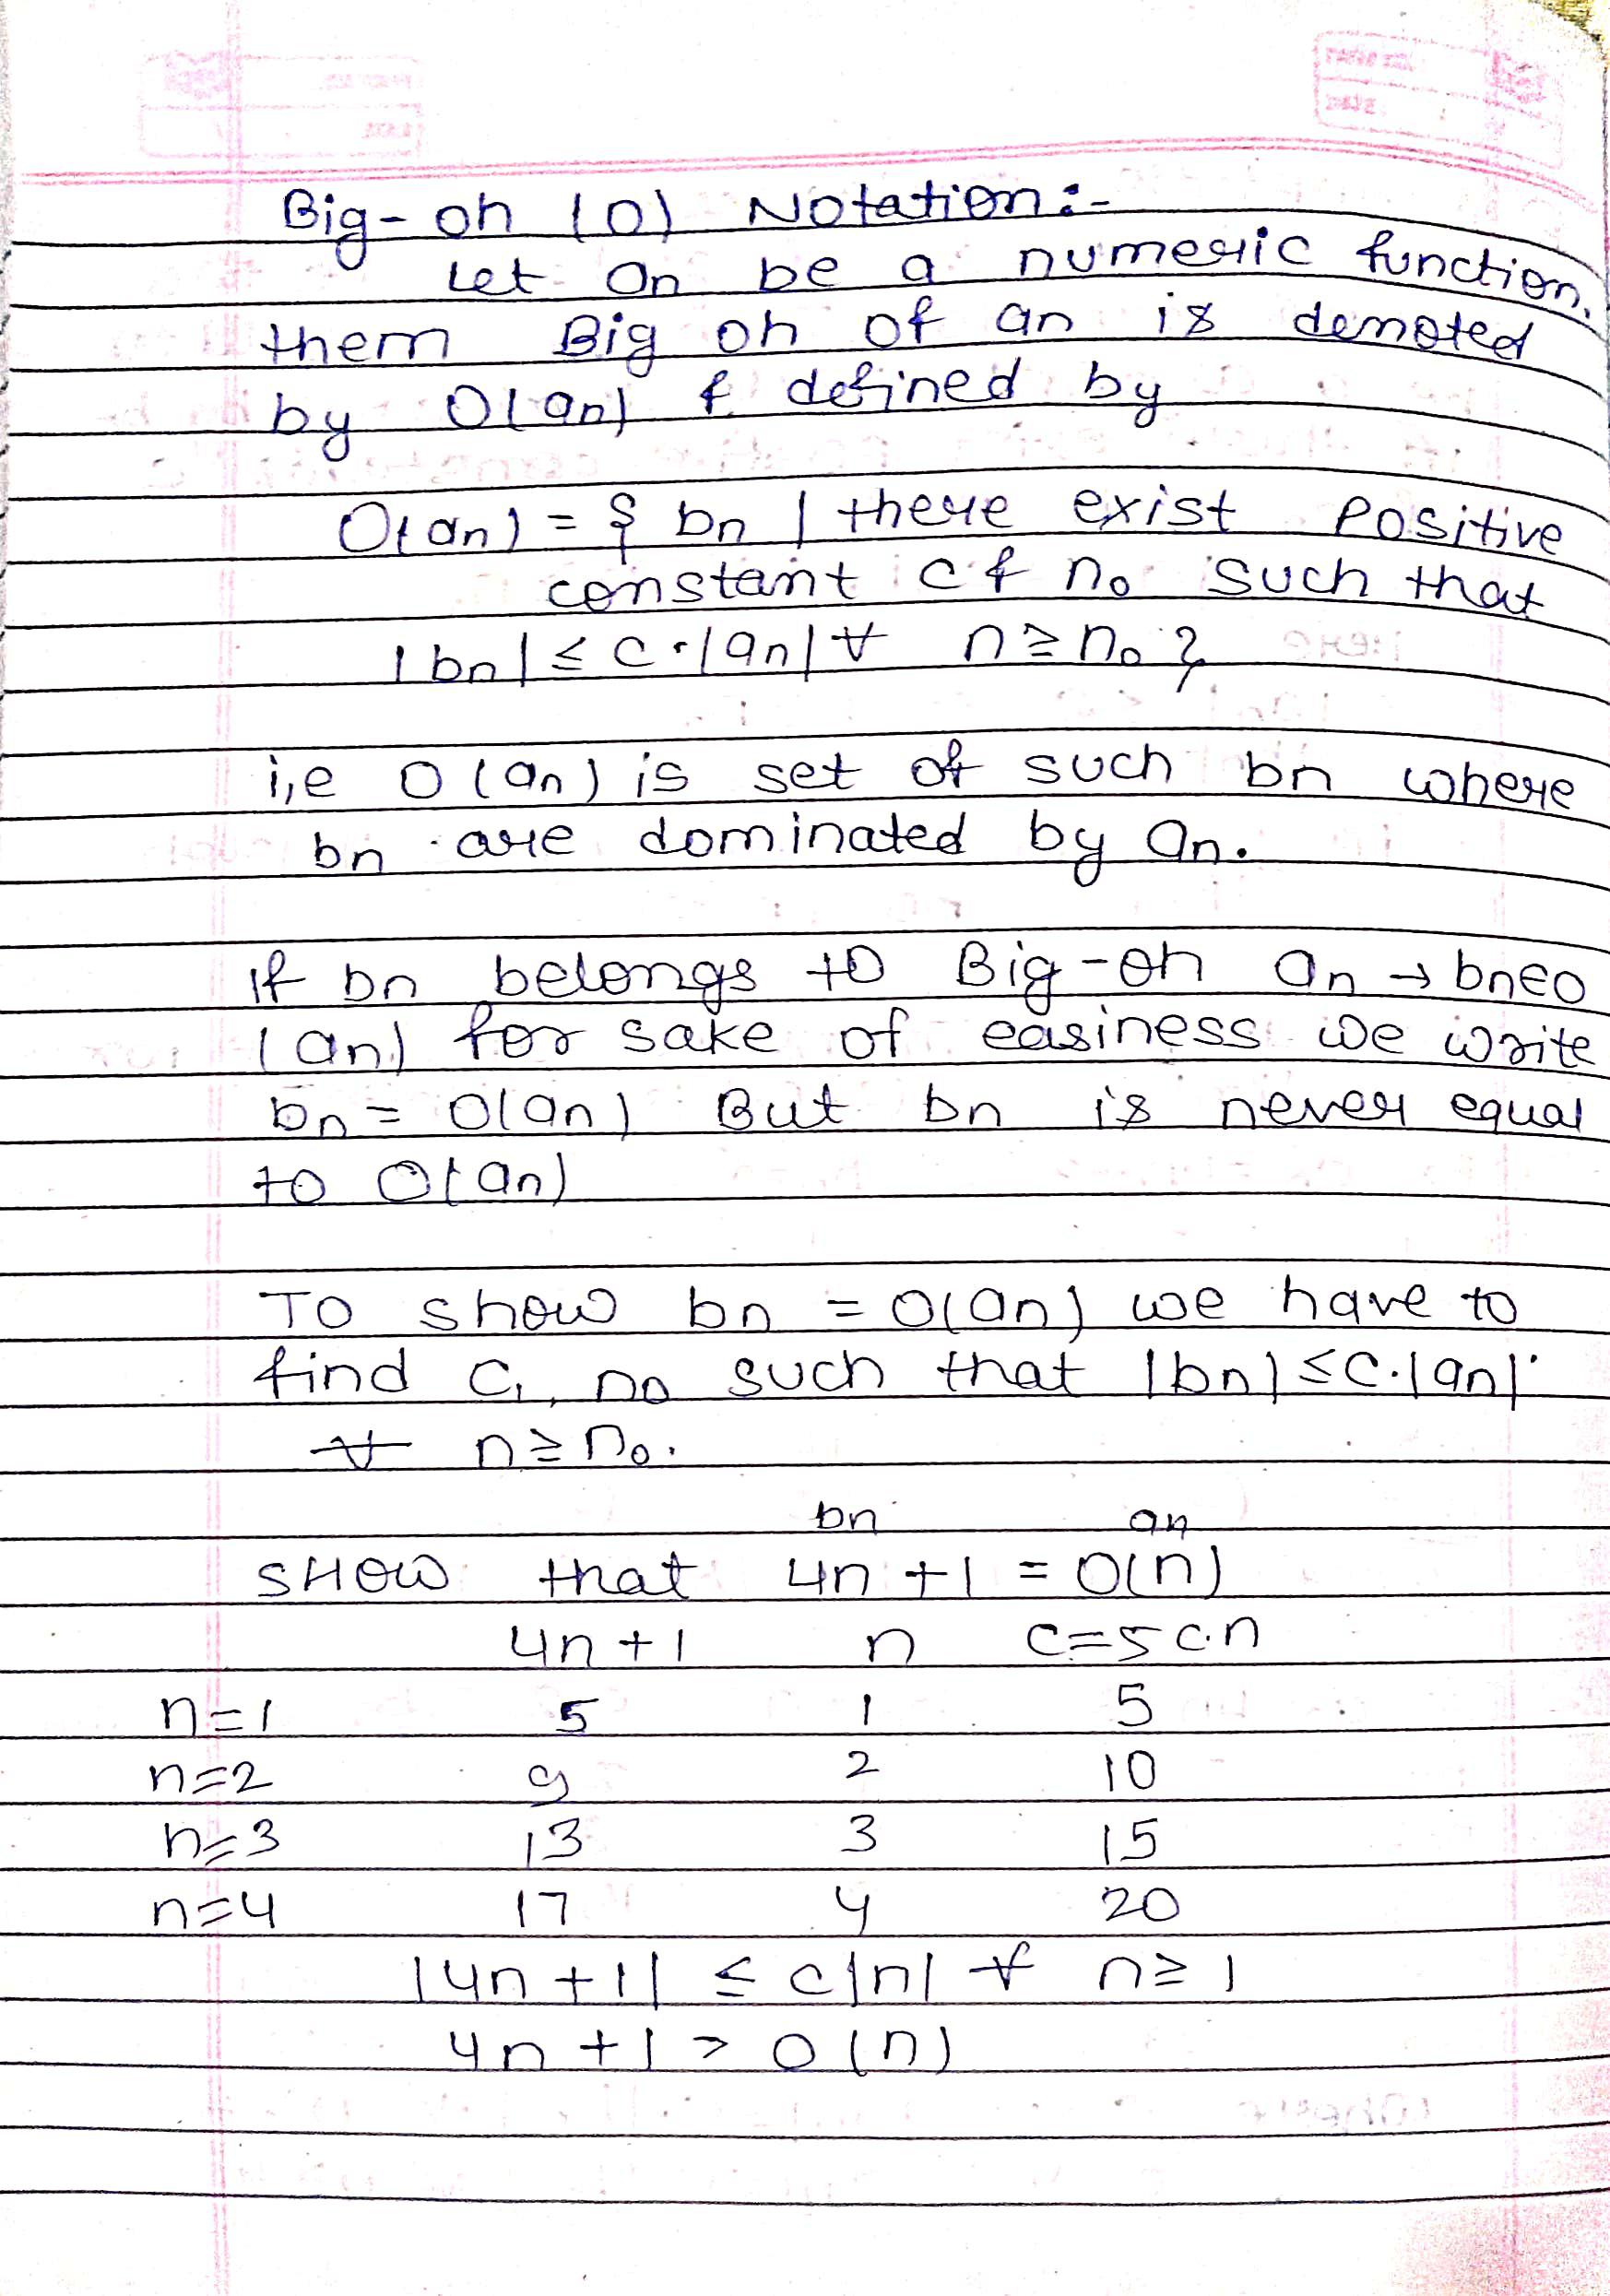 Big-oh (O) Notation:-
Let an be a numeric function,
them Big oh of an is denoted
by O(an) & defined by
O(an) = { bn | there exist Positive
constant c & n₀ such that
|bn| ≤ c.|an| ∀ n ≥ n₀ }
i,e O(an) is set of such bn where
bn are dominated by an.
If bn belongs to Big-oh an → bn∈O
(an) for sake of easiness we write
bn = O(an) But bn is never equal
to O(an)
To show bn = O(an) we have to
find C, n₀ such that |bn| ≤ C.|an|
∀ n ≥ n₀.
bn an
SHOW that 4n+1 = O(n)
4n+1 n c=5 c.n
n=1 5 1 5
n=2 9 2 10
n=3 13 3 15
n=4 17 4 20
|4n+1| ≤ c|n| ∀ n ≥ 1
4n+1 > O(n)